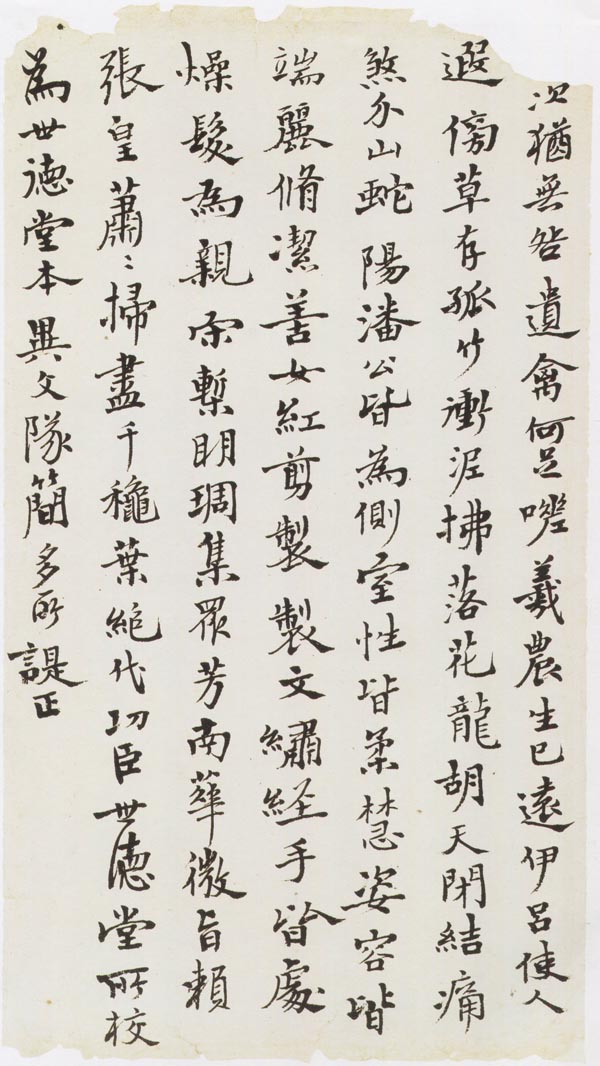 次猶無咎遺禽何足嘆羲農生已遠伊呂使人
遐傍草存孤竹衝泥拂落花龍胡天閉結痛
煞分山蛇陽潘公皆為側室性皆柔慧姿容皆
端麗脩潔善女紅剪製製文繡経手皆處
燥髮為親室槧明琱集眾芳南華微旨賴
張皇蕭〻掃盡千穐葉絕代功臣世德堂所校
為世德堂本異文隊簡多所諟正